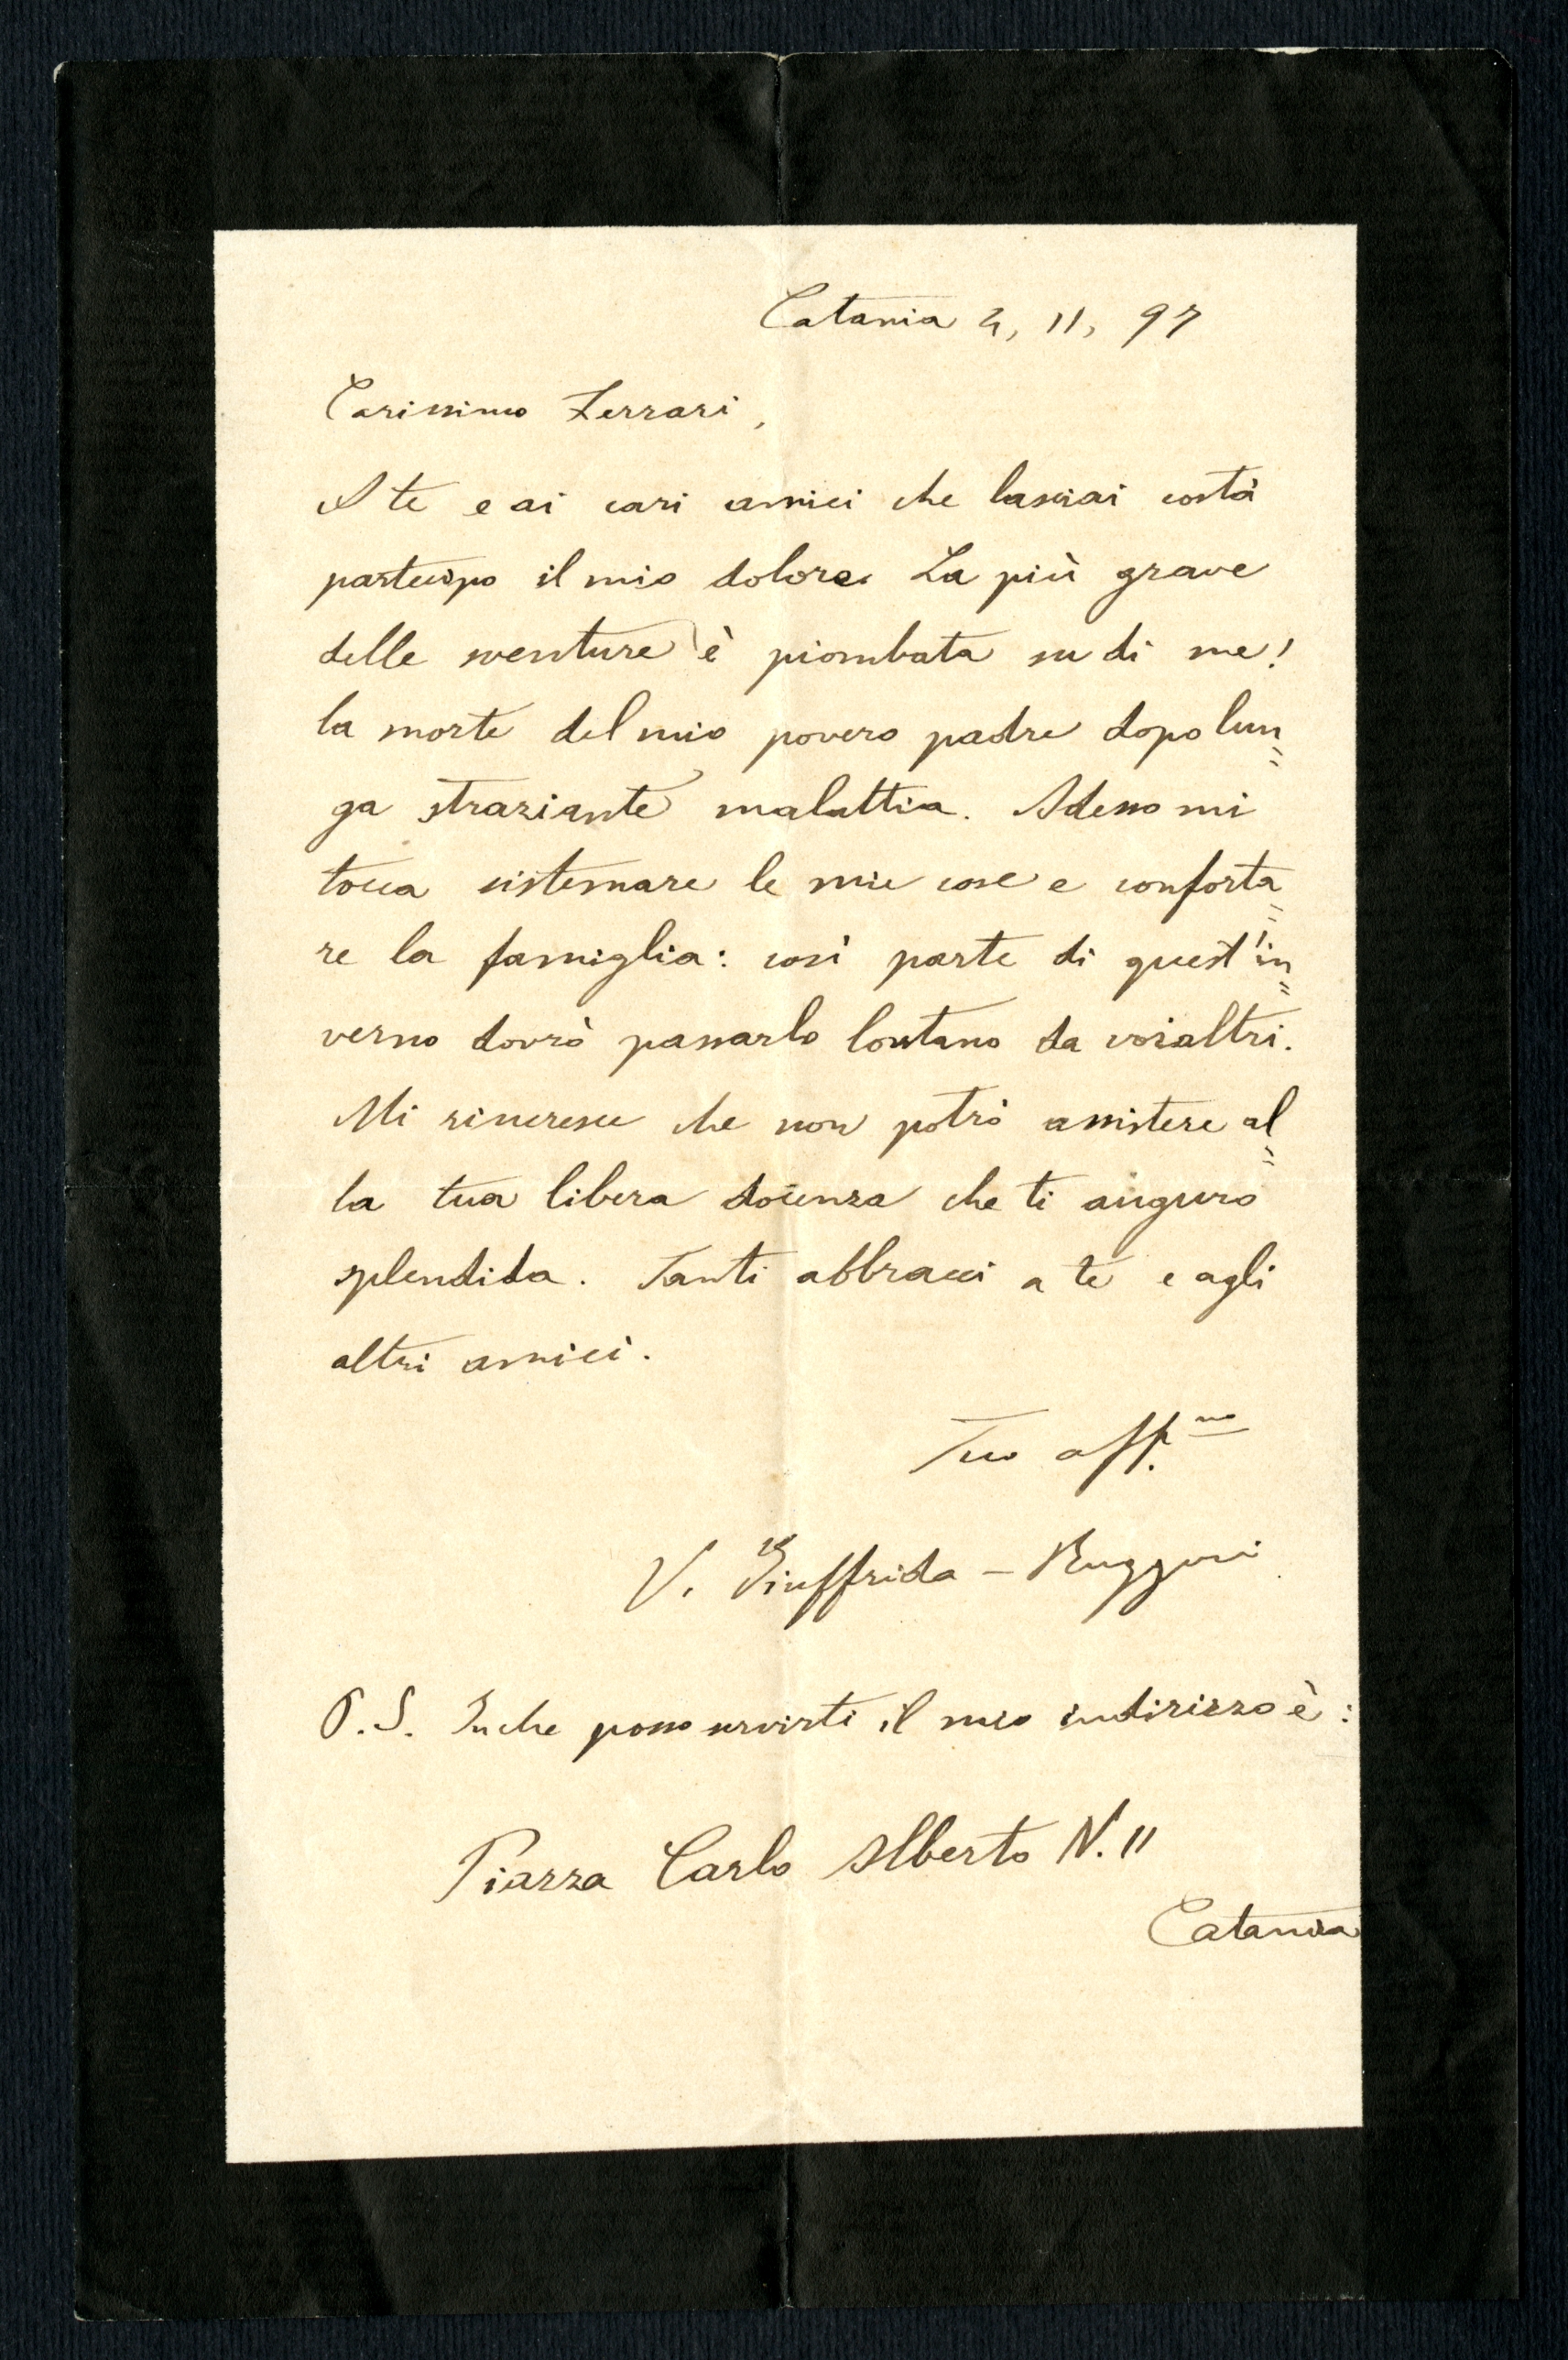 Catania 4, 11, 97
Carissimo Ferrari,
A te e ai cari amici che lasciai costà
partecipo il mio dolore. La più grave
delle sventure è piombata su di me!
la morte del mio povero padre dopo lun=
ga straziante malattia. Adesso mi
tocca sistemare le mie cose e conforta=
re la famiglia: così parte di quest'in=
verno dovrò passarlo lontano da voialtri.
Mi rincresce che non potrò assistere al=
la tua libera docenza che ti auguro
splendida. Tanti abbracci a te e agli
altri amici.
Tuo aff.mo
V. Giuffrida - Ruggeri
P.S. In che posso servirti il mio indirizzo è:
Piazza Carlo Alberto N. 11
Catania